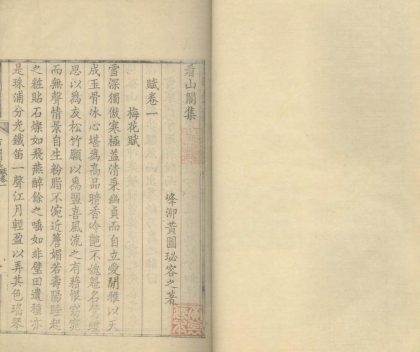 看山閣集
賦卷一
峰泖黃圖珌容之著
梅花賦
雪深獨傲寒極益清秉幽貞而自立愛閒雅以天
成玉骨冰心堪為高品暗香冷艷不媿名
思以為友松竹願以為盟喜風流之有藉恨窈窕
而無聲情景自生粉脂不涴近簷媚若壽陽睡起
之粧貼石燦如飛燕醉餘之唾如非璧田遺種亦
是珠浦分光鐵笛一聲江月輕盈以弄其色瑤琴